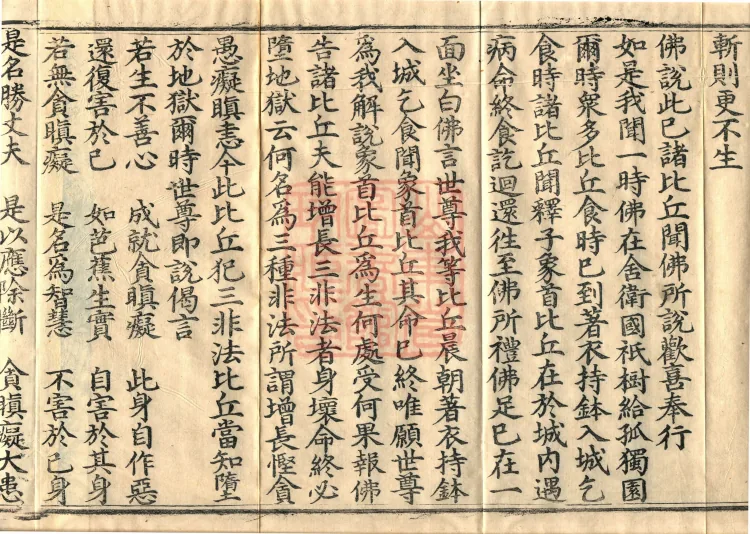 斬則更不生
佛說此已諸比丘聞佛所說歡喜奉行
如是我聞一時佛在舍衛國祇樹給孤獨園
爾時衆多比丘食時已到著衣持鉢入城乞
食時諸比丘聞釋子象首比丘在於城內遇
病命終食訖迴還往至佛所禮佛足已在一
面坐白佛言世尊我等比丘晨朝著衣持鉢
入城乞食聞象首比丘其命已終唯願世尊
爲我解說象首比丘爲生何處受何果報佛
告諸比丘夫能增長三非法者身壞命終必
墮地獄云何名爲三種非法所謂增長慳貪
愚癡瞋恚今此比丘犯三非法比丘當知墮
於地獄爾時世尊即說偈言
若生不善心　成就貪瞋癡　此身自作惡
還復害於己　如芭蕉生實　自害於其身
若無貪瞋癡　是名爲智慧　不害於己身
是名勝丈夫　是以應除斷　貪瞋癡大患